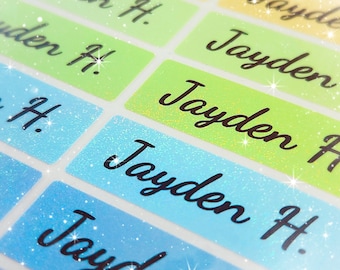 Jayden H.
Jayden
Jayden H.
Jayden H.
Jayden H.
Jayden H
Jayden H.
Jayden H.